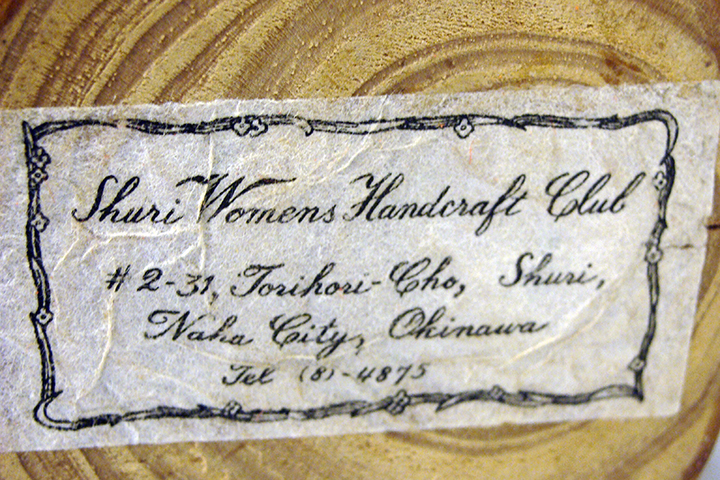 Shuri Womens Handcraft Club
# 2-31, Torihori-Cho, Shuri,
Naha City, Okinawa
Tel (8)-4875